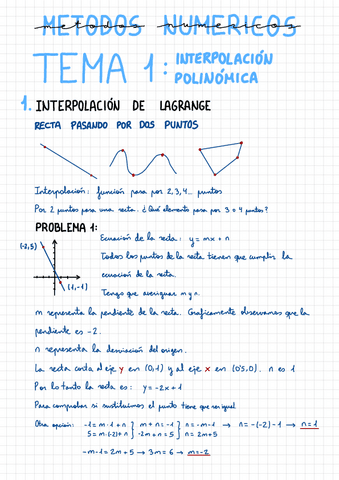 METODOS NUMERICOS
TEMA 1: INTERPOLACIÓN
POLINÓMICA
1. INTERPOLACIÓN DE LAGRANGE
RECTA PASANDO POR DOS PUNTOS
Interpolación: función pasa por 2,3,4... puntos
Por 2 puntos pasa una recta. ¿Qué elemento pasa por 3 o 4 puntos?
PROBLEMA 1:
(-2,5)
(1,-1)
Ecuación de la recta: y = mx + n
Todos los puntos de la recta tienen que cumplir la
ecuación de la recta.
Tengo que averiguar m y n.
m representa la pendiente de la recta. Graficamente observamos que la
pendiente es -2.
n representa la desviación del origen.
La recta corta al eje y en (0,1) y al eje x en (0'5,0). n es 1
Por lo tanto la recta es: y = -2x + 1
Para comprobar si sustituimos el punto tiene que ser igual
Otra opción: -1 = m·1 + n } m + n = -1 } n = -m - 1 → n = -(-2) - 1 → n = 1
5 = m·(-2) + n } -2m + n = 5 } n = 2m + 5
-m - 1 = 2m + 5 → 3m = 6 → m = -2